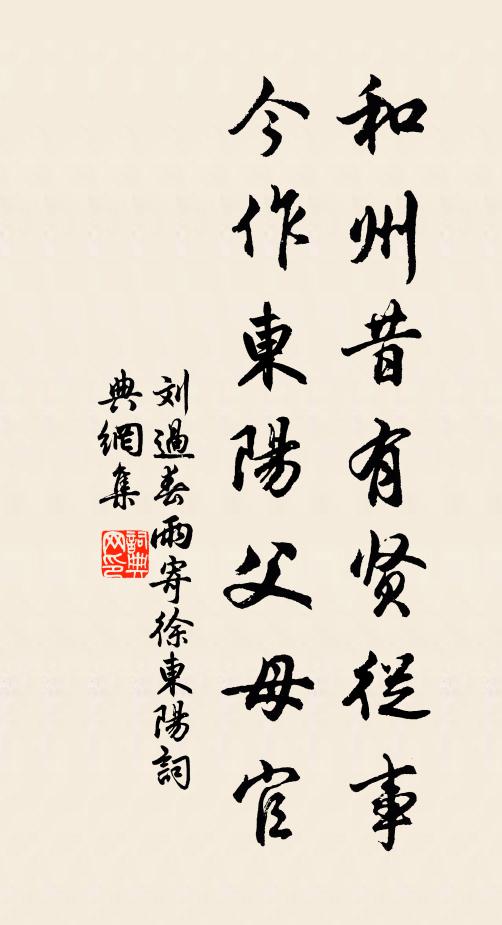 和州昔有贤從事
今作東陽父母官
刘過春雨寄徐東陽詞
典網集
詞典
网印